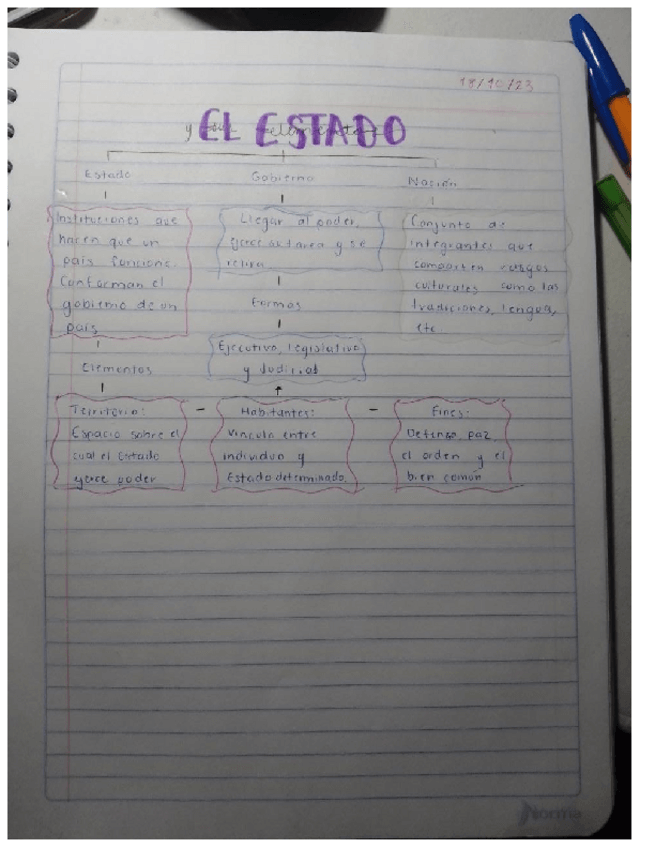 18/10/23
EL ESTADO
y sus elementos
Estado
Gobierno
Nación
Instituciones que
hacen que un
país funcione.
Conforman el
gobierno de un
país
Llegar al poder,
ejerce su tarea y se
retira
Conjunto de
integrantes que
comparten rasgos
culturales como las
tradiciones, lengua,
etc
Formas
Ejecutivo, legislativo
y Judicial
Elementos
Territorio:
Espacio sobre el
cual el Estado
ejerce poder
Habitantes:
Vínculo entre
individuo y
Estado determinado.
Fines:
Defensa, paz,
el orden y el
bien común
Norma